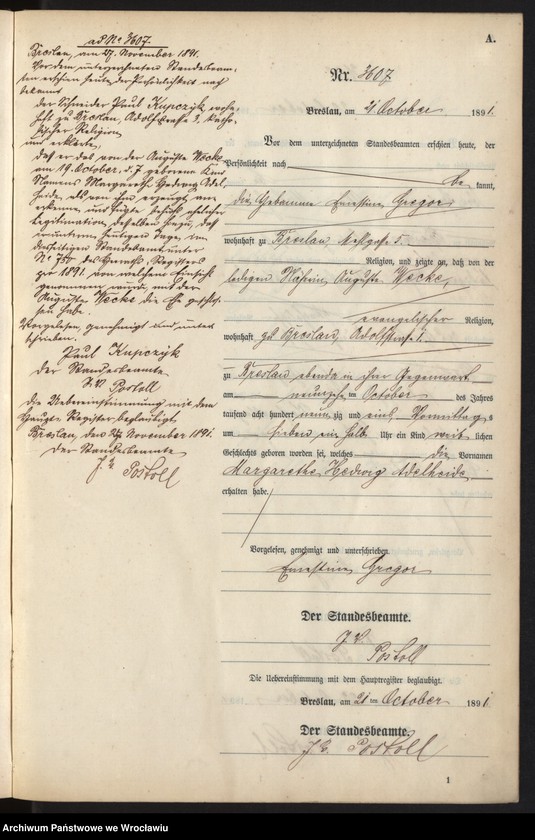 ad No 3607.
Breslau, am 27. November 1891.
Vor dem unterzeichneten Standesbeam-
ten erschien heute, der Persönlichkeit nach
bekannt
der Schneider Paul Kupczyk, wohn-
haft zu Breslau, Adolfstraße 1, katho-
lischer Religion
und erklärte,
daß er das von der Auguste Wecke
am 19. October d. J. geborene Kind
Namens Margarethe Hedwig Adel-
heide, als von ihm erzeugt, an-
erkenne und fügte behufs
Legitimation desselben hinzu, daß
er unterm heutigen Tage, im
diesseitigen Standesamt unter
No 750 des Heiraths-Registers
pro 1891, von welchem Einsicht
genommen wurde, mit der
Auguste Wecke die Ehe geschlos-
sen habe.
Vorgelesen, genehmigt und unter-
schrieben.
Paul Kupczyk
Der Standesbeamte
J. V. Postoll
Die Uebereinstimmung mit dem
Haupt-Register beglaubigt
Breslau, den 27. November 1891.
Der Standesbeamte
J. V. Postoll
A.
Nr. 3607
Breslau, am 21 October 1891.
Vor dem unterzeichneten Standesbeamten erschien heute, der
Persönlichkeit nach
be kannt,
die Hebamme Ernestine Gregor,
wohnhaft zu Breslau, 5.
Religion, und zeigte an, daß von der
ledigen Näherin, Auguste Wecke,
evangelischer Religion,
wohnhaft zu Breslau, Adolfstraße 1.
zu Breslau ebenda in ihrer Gegenwart
am neunzehnten October des Jahres
tausend acht hundert neunzig und eins, Vormittags
um sieben ein halb Uhr ein Kind weib lichen
Geschlechts geboren worden sei, welches die Vornamen
Margarethe Hedwig Adelheide
erhalten habe.
Vorgelesen, genehmigt und unterschrieben.
Ernestine Gregor
Der Standesbeamte.
J. V.
Postoll
Die Uebereinstimmung mit dem Hauptregister beglaubigt.
Breslau, am 21 ten October 1891.
Der Standesbeamte.
J. V. Postoll
1
Archiwum Państwowe we Wrocławiu